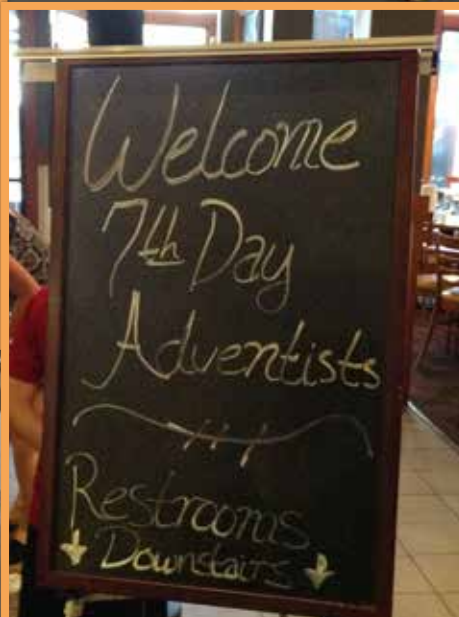 Welcome
7th Day
Adventists
Restrooms
Downstairs